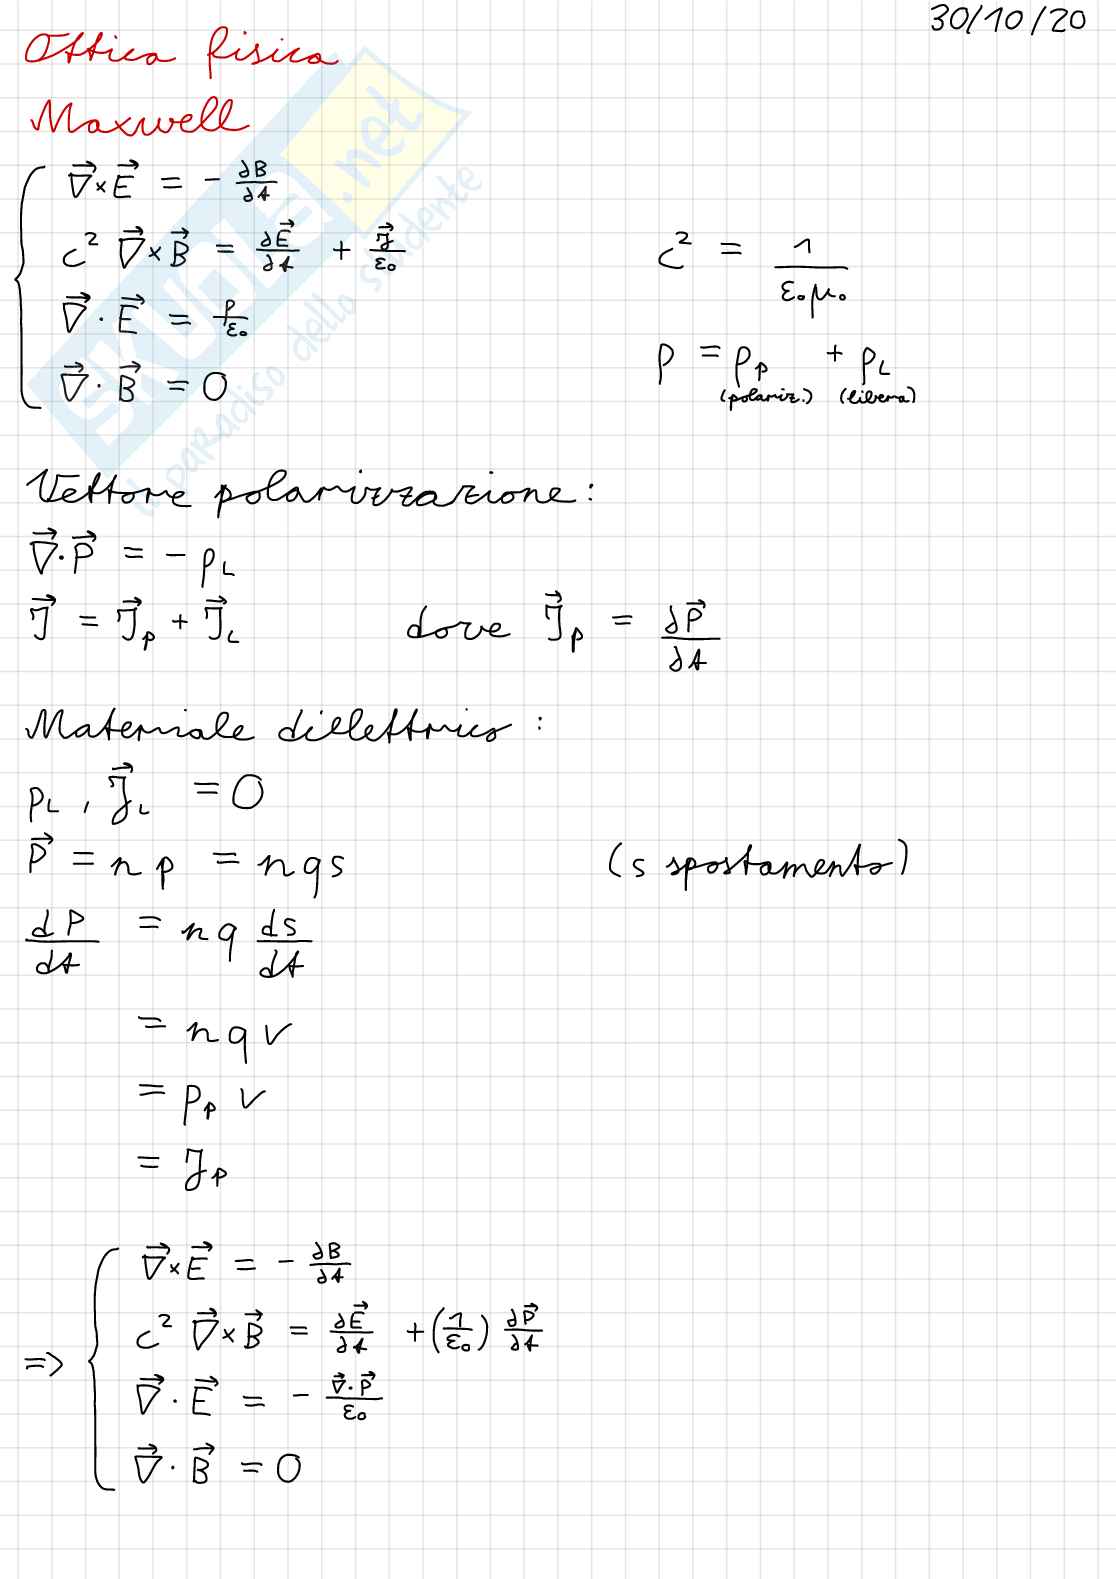 30/10/20
Ottica fisica
Maxwell
∇⃗×E⃗ = - ∂B/∂t
c² ∇⃗×B⃗ = ∂E⃗/∂t + J⃗/ε₀
c² = 1/(ε₀μ₀)
∇⃗·E⃗ = ρ/ε₀
ρ = ρ_P + ρ_L
(polariz.) (libera)
∇⃗·B⃗ = 0
SKUOLA.net
il paradiso dello studente
Vettore polarizzazione:
∇⃗·P⃗ = - ρ_L
J⃗ = J⃗_P + J⃗_L dove J⃗_P = ∂P⃗/∂t
Materiale dielettrico:
ρ_L, J⃗_L = 0
P⃗ = n p = nqs (s spostamento)
dP/dt = nq ds/dt
= nqv
= ρ_P v
= J_P
∇⃗×E⃗ = - ∂B/∂t
c² ∇⃗×B⃗ = ∂E⃗/∂t + (1/ε₀) ∂P⃗/∂t
=>
∇⃗·E⃗ = - ∇⃗·P⃗/ε₀
∇⃗·B⃗ = 0